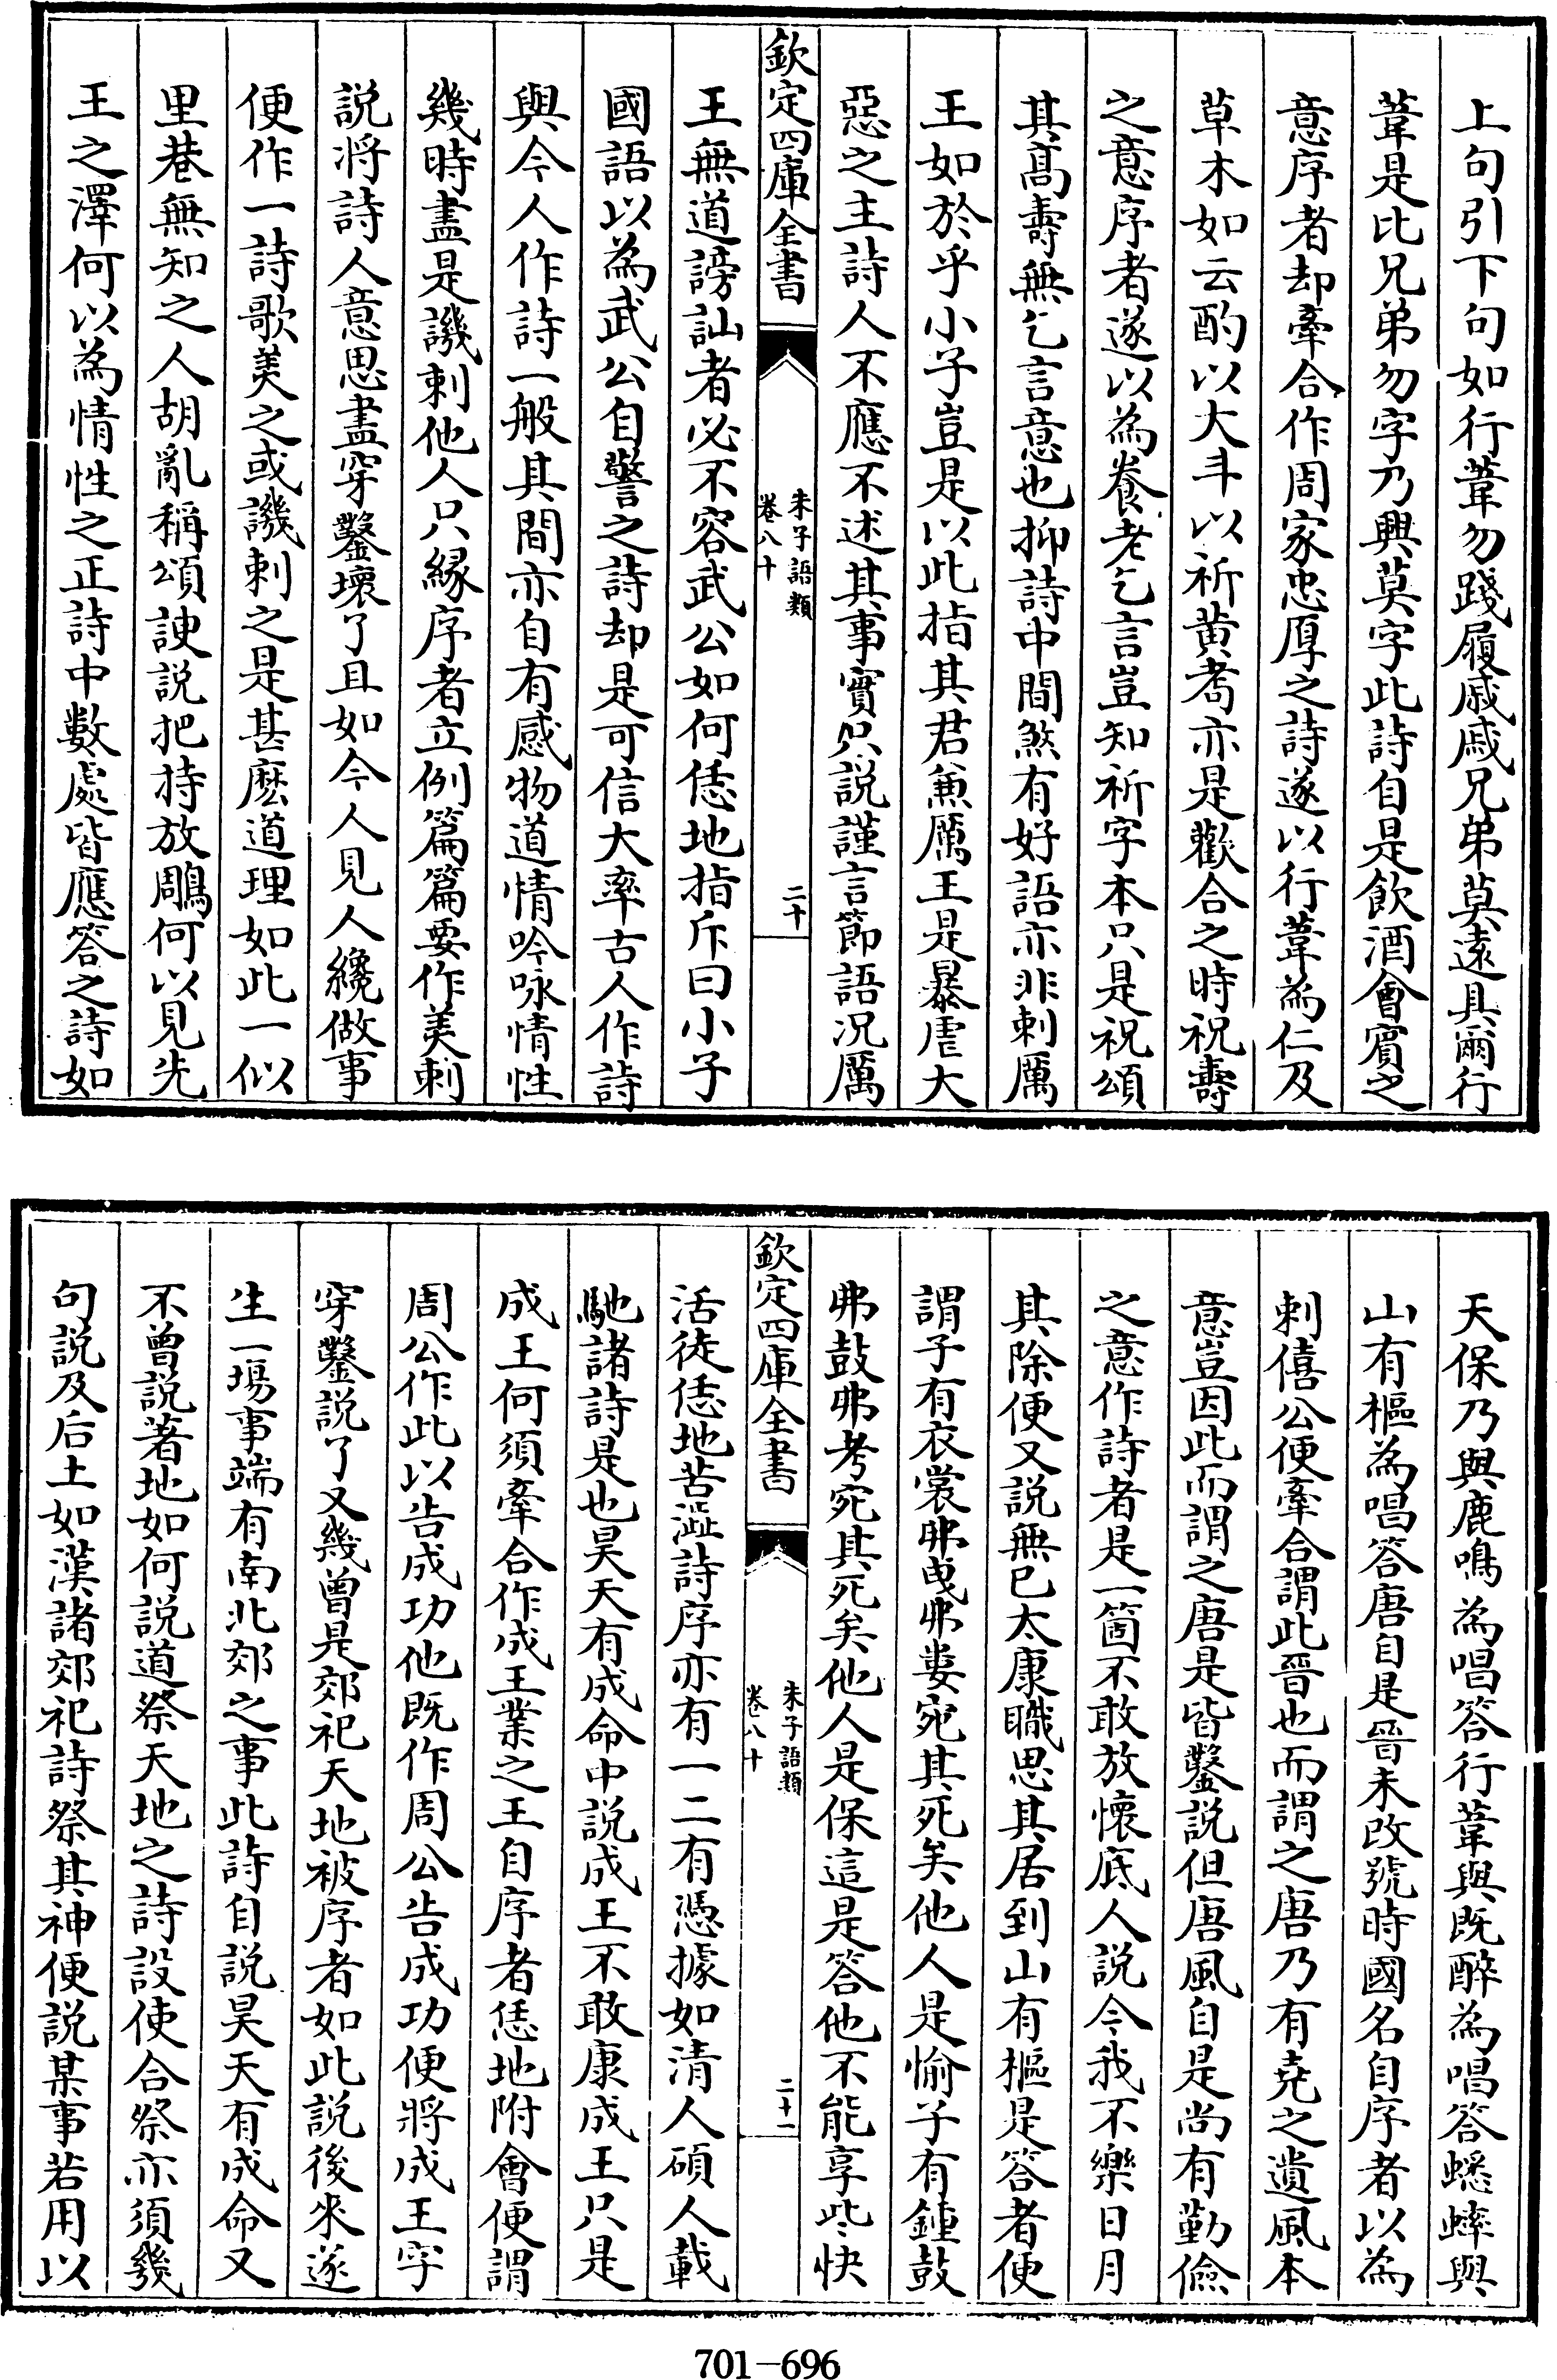 上句引下句如行葦勿踐履戚戚兄弟莫遠具爾行
葦是比兄弟勿字乃興莫字此詩自是飲酒會賓之
意序者却牽合作周家忠厚之詩遂以行葦為仁及
草木如云酌以大斗以祈黄耈亦是歡合之時祝壽
之意序者遂以為養老乞言豈知祈字本只是祝頌
其髙壽無乞言意也抑詩中間煞有好語亦非刺厲
王如於乎小子豈是以此指其君兼厲王是暴虐大
惡之主詩人不應不述其事實只説謹言節語况厲
欽定四庫全書
朱子語類
卷八十
二十
王無道謗訕者必不容武公如何恁地指斥曰小子
國語以為武公自警之詩却是可信大率古人作詩
與今人作詩一般其間亦自有感物道情吟咏情性
幾時盡是譏刺他人只縁序者立例篇篇要作美刺
説將詩人意思盡穿鑿壞了且如今人見人纔做事
便作一詩歌美之或譏刺之是甚麽道理如此一似
里巷無知之人胡亂稱頌諛説把持放鵰何以見先
王之澤何以為情性之正詩中數處皆應答之詩如
天保乃與鹿鳴為唱答行葦與既醉為唱答蟋蟀與
山有樞為唱答唐自是晉未改號時國名自序者以為
刺僖公便牽合謂此晉也而謂之唐乃有堯之遺風本
意豈因此而謂之唐是皆鑿説但唐風自是尚有勤儉
之意作詩者是一箇不敢放懷底人説今我不樂日月
其除便又説無已太康職思其居到山有樞是答者便
謂子有衣裳弗曳弗婁宛其死矣他人是愉子有鍾鼓
弗鼓弗考宛其死矣他人是保這是答他不能享些快
欽定四庫全書
朱子語類
卷八十
二十一
活徒恁地苦澁詩序亦有一二有憑據如清人碩人載
馳諸詩是也昊天有成命中説成王不敢康成王只是
成王何須牽合作成王業之王自序者恁地附會便謂
周公作此以告成功他既作周公告成功便將成王字
穿鑿説了又幾曾是郊祀天地被序者如此説後來遂
生一場事端有南北郊之事此詩自説昊天有成命又
不曾説著地如何説道祭天地之詩設使合祭亦須幾
句説及后土如漢諸郊祀詩祭其神便説某事若用以
701-696